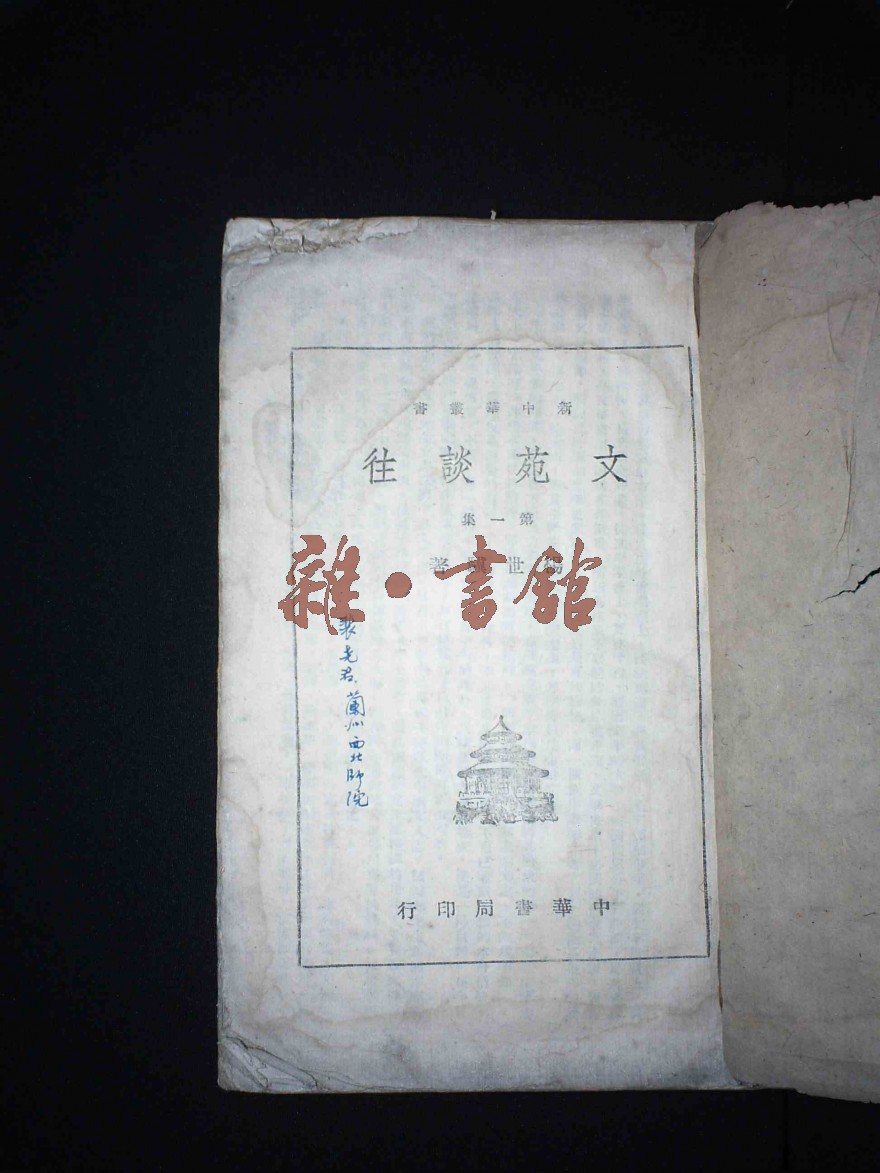 新中華叢書
文苑談往
第一集
楊世驥著
雜·書館
裴老君 蘭州西北師院
中華書局印行